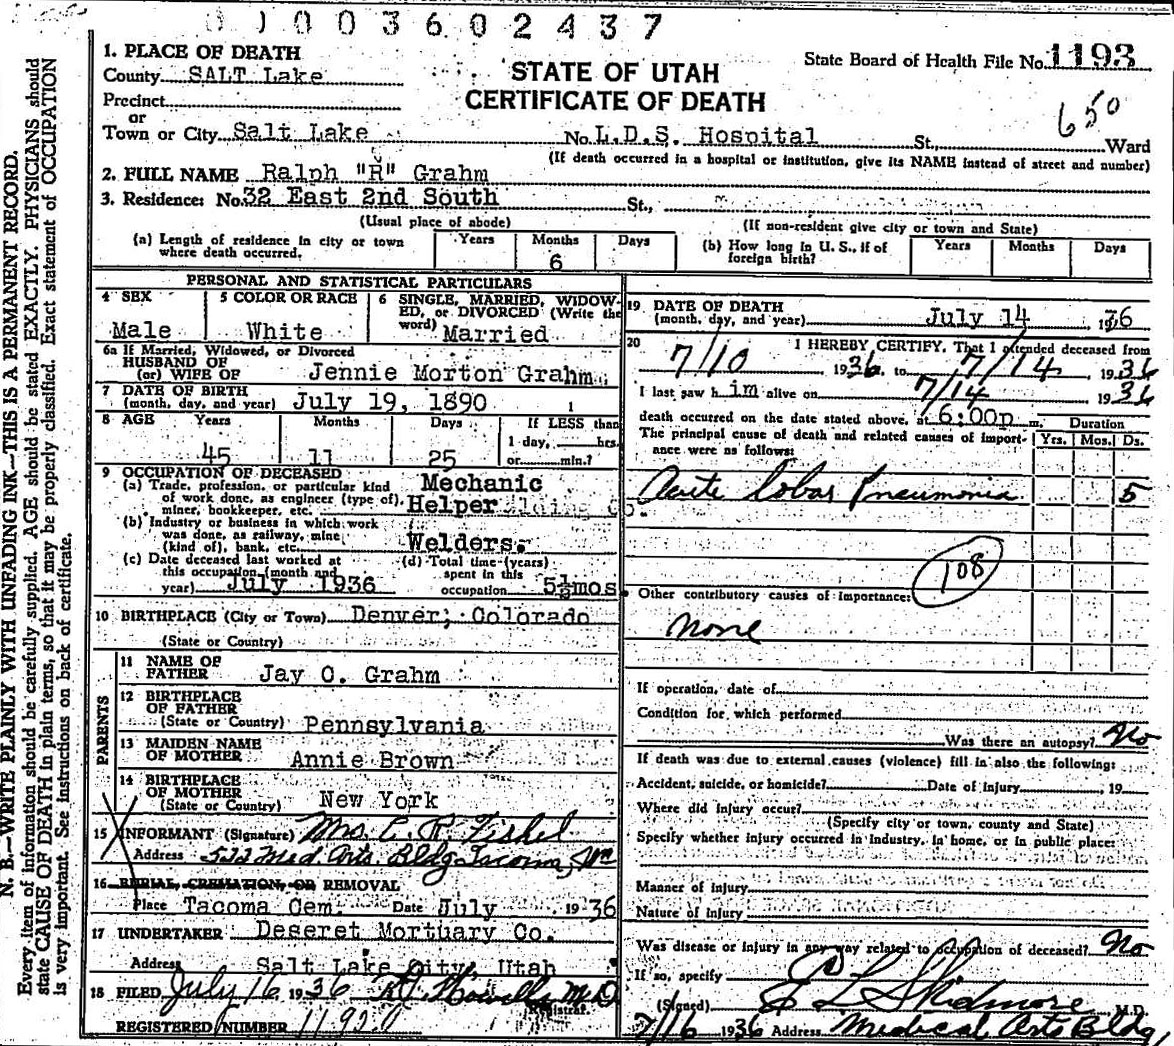 01003602437
1. PLACE OF DEATH
County SALT Lake
State Board of Health File No. 1193
STATE OF UTAH
CERTIFICATE OF DEATH
Precinct
or
Town or City Salt Lake No. L.D.S. Hospital St., Ward
650
(If death occurred in a hospital or institution, give its NAME instead of street and number)
2. FULL NAME Ralph "R" Grahm
3. Residence: No. 32 East 2nd South St.,
(Usual place of abode) (If non-resident give city or town and State)
(a) Length of residence in city or town where death occurred. Years Months 6 Days
(b) How long in U. S., if of foreign birth? Years Months Days
PERSONAL AND STATISTICAL PARTICULARS
4 SEX Male
5 COLOR OR RACE White
6 SINGLE, MARRIED, WIDOWED, or DIVORCED (Write the word) Married
6a If Married, Widowed, or Divorced
HUSBAND OF
(or) WIFE OF Jennie Morton Grahm
7 DATE OF BIRTH
(month, day, and year) July 19, 1890
8 AGE Years 45 Months 11 Days 25 If LESS than 1 day, hrs. or min.?
9 OCCUPATION OF DECEASED
(a) Trade, profession, or particular kind of work done, as engineer (type of), miner, bookkeeper, etc. Mechanic Helper
(b) Industry or business in which work was done, as railway, mine (kind of), bank, etc. Welders.
(c) Date deceased last worked at this occupation (month and year) July 1936
(d) Total time (years) spent in this occupation 5½mos.
10 BIRTHPLACE (City or Town) Denver, Colorado
(State or Country)
PARENTS
11 NAME OF FATHER Jay C. Grahm
12 BIRTHPLACE OF FATHER
(State or Country) Pennsylvania
13 MAIDEN NAME OF MOTHER Annie Brown
14 BIRTHPLACE OF MOTHER
(State or Country) New York
15 INFORMANT (Signature) Mrs. C. R. Fishel
Address 522 Med. Arts. Bldg Tacoma, Wn
16 BURIAL, CREMATION, OR REMOVAL
Place Tacoma Cem. Date July 1936
17 UNDERTAKER Deseret Mortuary Co.
Address Salt Lake City, Utah
18 FILED July 16 1936 Howells M.D.
Registrar.
REGISTERED NUMBER 1192
19 DATE OF DEATH
(month, day, and year) July 14 1936
20 I HEREBY CERTIFY, That I attended deceased from
7/10 1936, to 7/14, 1936
I last saw him alive on 7/14 1936
death occurred on the date stated above, at 6:00p m. Duration
The principal cause of death and related causes of importance were as follows: Yrs. Mos. Ds.
Acute lobar Pneumonia 5
108
Other contributory causes of importance:
None
If operation, date of
Condition for which performed
Was there an autopsy? No
If death was due to external causes (violence) fill in also the following:
Accident, suicide, or homicide? Date of injury , 19
Where did injury occur?
(Specify city or town, county and State)
Specify whether injury occurred in industry, in home, or in public place:
Manner of injury
Nature of injury
Was disease or injury in any way related to occupation of deceased? No
If so, specify
(Signed) E L Skidmore M.D.
7/16 1936 Address Medical Arts Bldg
N. B.—WRITE PLAINLY WITH UNFADING INK—THIS IS A PERMANENT RECORD.
Every item of information should be carefully supplied. AGE should be stated EXACTLY. PHYSICIANS should
state CAUSE OF DEATH in plain terms, so that it may be properly classified. Exact statement of OCCUPATION
is very important. See instructions on back of certificate.